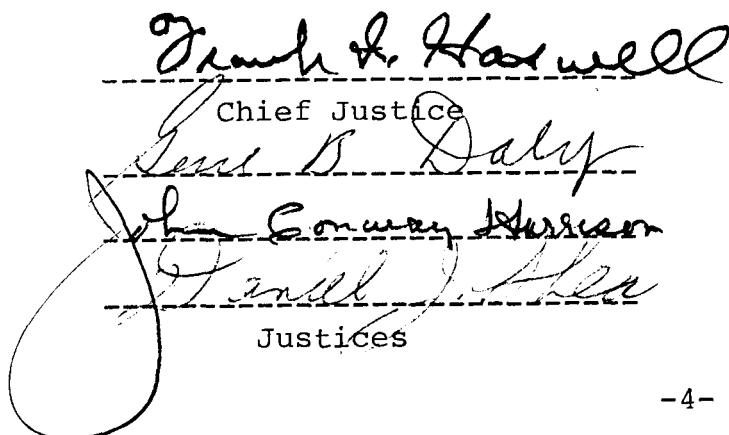 Frank I. Haswell
Chief Justice
Gene B Daly
John Conway Harrison
Daniel J. Shea
Justices
-4-